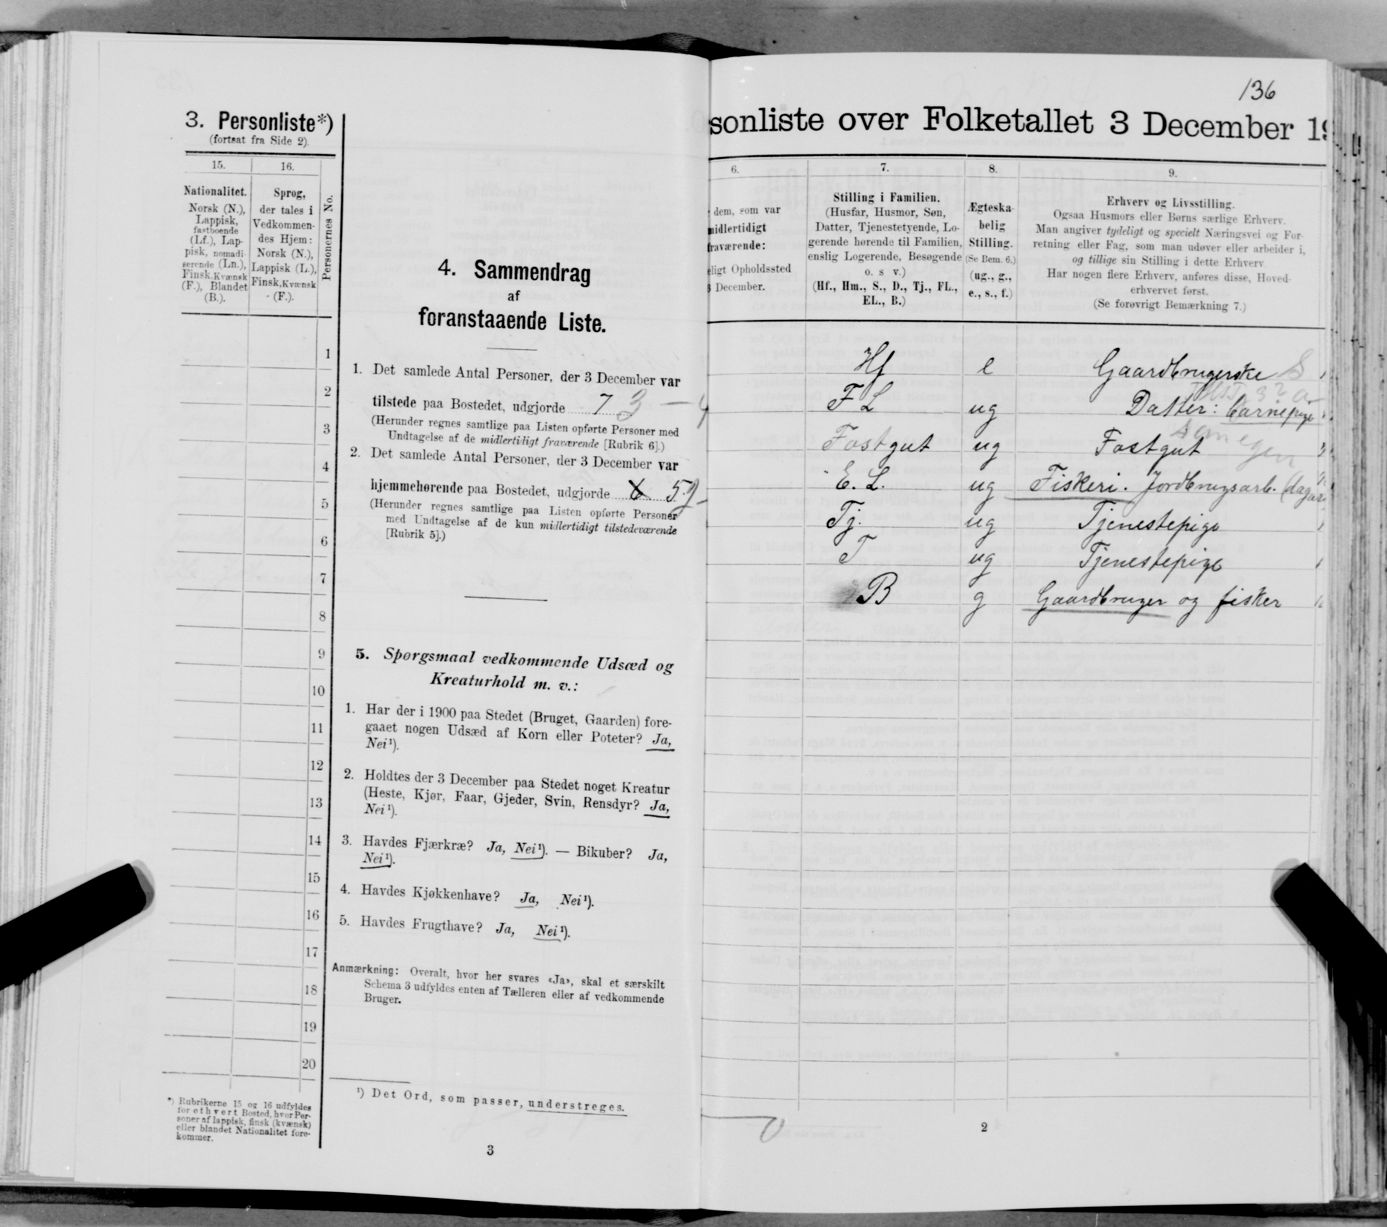 3. Personliste*)
(fortsat fra Side 2).
15.
16.
Nationalitet.
Norsk (N.),
Lappisk,
fastboende
(Lf.), Lap-
pisk, nomadi-
serende (Ln.),
Finsk, Kvænsk
(F.), Blandet
(B.).
Sprog,
der tales i
Vedkommen-
des Hjem:
Norsk (N.),
Lappisk (L.),
Finsk, Kvænsk
(F.).
Personernes No.
1
2
3
4
5
6
7
8
9
10
11
12
13
14
15
16
17
18
19
20
*) Rubrikerne 15 og 16 udfyldes
for ethvert Bosted, hvor Per-
soner af lappisk, finsk (kvænsk)
eller blandet Nationalitet fore-
kommer.
4. Sammendrag
af
foranstaaende Liste.
1. Det samlede Antal Personer, der 3 December var
tilstede paa Bostedet, udgjorde 7 3 – 4
(Herunder regnes samtlige paa Listen opførte Personer med
Undtagelse af de midlertidigt fraværende [Rubrik 6].)
2. Det samlede Antal Personer, der 3 December var
hjemmehørende paa Bostedet, udgjorde 6 5
(Herunder regnes samtlige paa Listen opførte Personer
med Undtagelse af de kun midlertidigt tilstedeværende
[Rubrik 5].)
5. Spørgsmaal vedkommende Udsæd og
Kreaturhold m. v.:
1. Har der i 1900 paa Stedet (Bruget, Gaarden) fore-
gaaet nogen Udsæd af Korn eller Poteter? Ja,
Nei¹).
2. Holdtes der 3 December paa Stedet noget Kreatur
(Heste, Kjør, Faar, Gjeder, Svin, Rensdyr? Ja,
Nei¹).
3. Havdes Fjærkræ? Ja, Nei¹). — Bikuber? Ja,
Nei¹).
4. Havdes Kjøkkenhave? Ja, Nei¹).
5. Havdes Frugthave? Ja, Nei¹).
Anmærkning: Overalt, hvor her svares «Ja», skal et særskilt
Schema 3 udfyldes enten af Tælleren eller af vedkommende
Bruger.
¹) Det Ord, som passer, understreges.
3
136
sonliste over Folketallet 3 December 19
6.
dem, som var
midlertidigt
fraværende:
ligt Opholdssted
3 December.
7.
Stilling i Familien.
(Husfar, Husmor, Søn,
Datter, Tjenestetyende, Lo-
gerende hørende til Familien,
enslig Logerende, Besøgende
o. s v.)
(Hf., Hm., S., D., Tj., FL.,
EL., B.)
8.
Ægteska-
belig
Stilling.
(Se Bem. 6.)
(ug., g.,
e., s., f.)
9.
Erhverv og Livsstilling.
Ogsaa Husmors eller Børns særlige Erhverv.
Man angiver tydeligt og specielt Næringsvei og For-
retning eller Fag, som man udøver eller arbeider i,
og tillige sin Stilling i dette Erhverv.
Har nogen flere Erhverv, anføres disse, Hoved-
erhvervet først.
(Se forøvrigt Bemærkning 7.)
Hf e Gaardbrugerske S
F L ug Datter: Barnepige
Fostgut ug Fostgut
E. L. ug Fiskeri. Jordbrugsarb.
Tj. ug Tjenestepige
T ug Tjenestepige
B g Gaardbruger og fisker
2